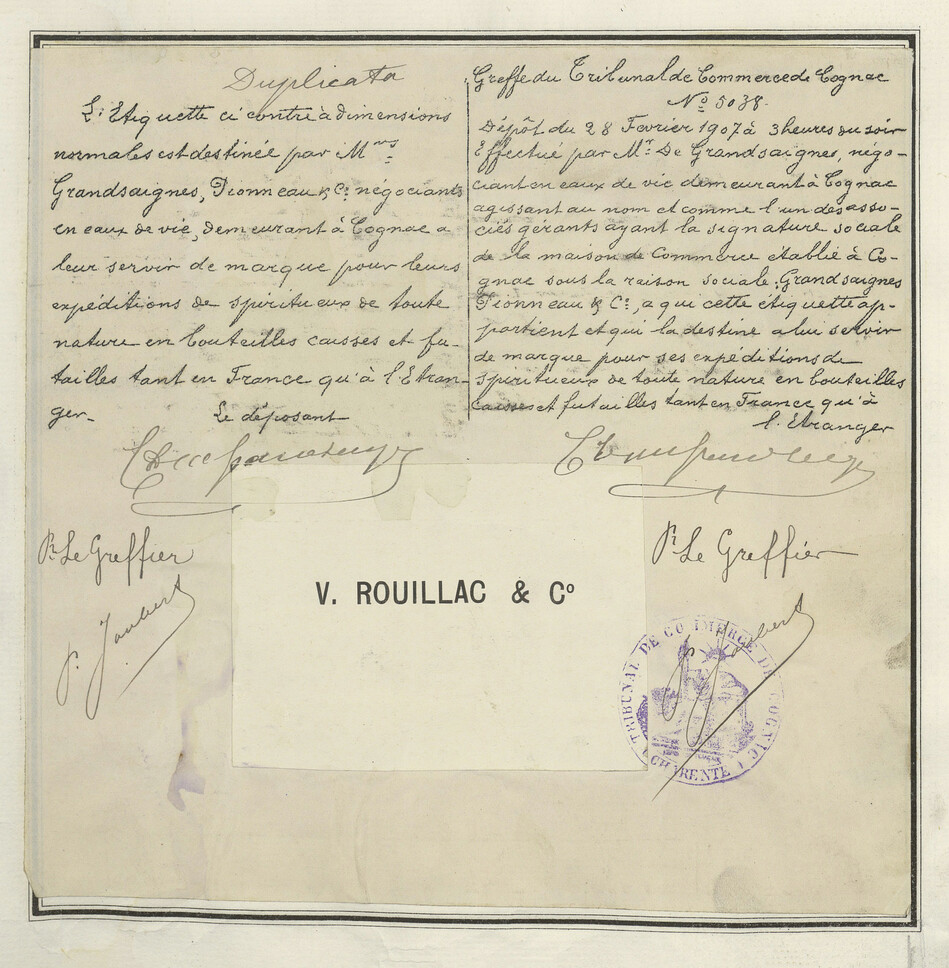 Duplicata
L'Etiquette ci contre à dimensions
normales est destinée par Mrs
Grandsaignes, Pionneau & Cie négociants
en eaux de vie, demeurant à Cognac a
leur servir de marque pour leurs
expéditions de spiritueux de toute
nature en bouteilles caisses et fu-
tailles tant en France qu'à l'Etran-
ger.
Le déposant
Pr Le Greffier
P. Joubert
Greffe du Tribunal de Commerce de Cognac
No 5038.
Dépôt du 28 Fevrier 1907 à 3 heures du soir
Effectué par Mr De Grandsaignes, négo-
ciant en eaux de vie demeurant à Cognac
agissant au nom et comme l'un des asso-
ciés gérants ayant la signature sociale
de la maison de Commerce établie à Co-
gnac sous la raison sociale: Grandsaignes
Pionneau & Cie, a qui cette étiquette ap-
partient et qui la destine a lui servir
de marque pour ses expéditions de
spiritueux de toute nature en bouteilles
caisses et futailles tant en France qu'à
l'Etranger
Pr Le Greffier
P. Joubert
V. ROUILLAC & Co
TRIBUNAL DE COMMERCE DE COGNAC
CHARENTE